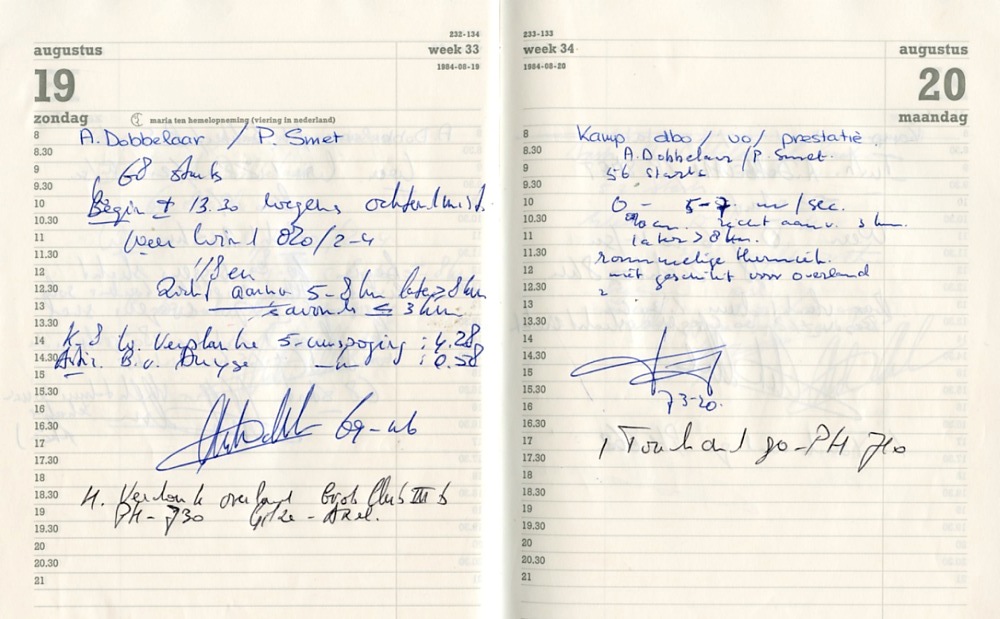 232-134
augustus week 33
1984-08-19
19
zondag maria ten hemelopneming (viering in nederland)
8 A. Dobbelaar / P. Smet
8.30
9 68 starts
9.30
10 Begin ± 13.30 wegens ochtendmist.
10.30
11 Weer Wind 020/2-4
11.30
12 1/8 en
12.30 Zicht aanv 5-8 km later > 8 km
13 savonds ≤ 3 km
13.30
14 K-8 Verplanke 5-uurspoging : 4.28
14.30 B.v. Duyse : 0.58
15
15.30
16
16.30
17
17.30
18
18.30 H. Verdonk overland Club III b
19 PH-730 Axel.
19.30
20
20.30
21
233-133
week 34 augustus
1984-08-20
20
maandag
8 Kamp dbo / vo / prestatie
8.30 A. Dobbelaar / P. Smet.
9 56 starts
9.30
10 0 - 5-7 m/sec.
10.30 zicht aanv. 5 km.
11 later > 8 km.
11.30 rommelige thermiek.
12 niet geschikt voor overland
12.30
13
13.30
14
14.30
15
15.30 73-20.
16
16.30
17 1 Touch and go - PH 710
17.30
18
18.30
19
19.30
20
20.30
21